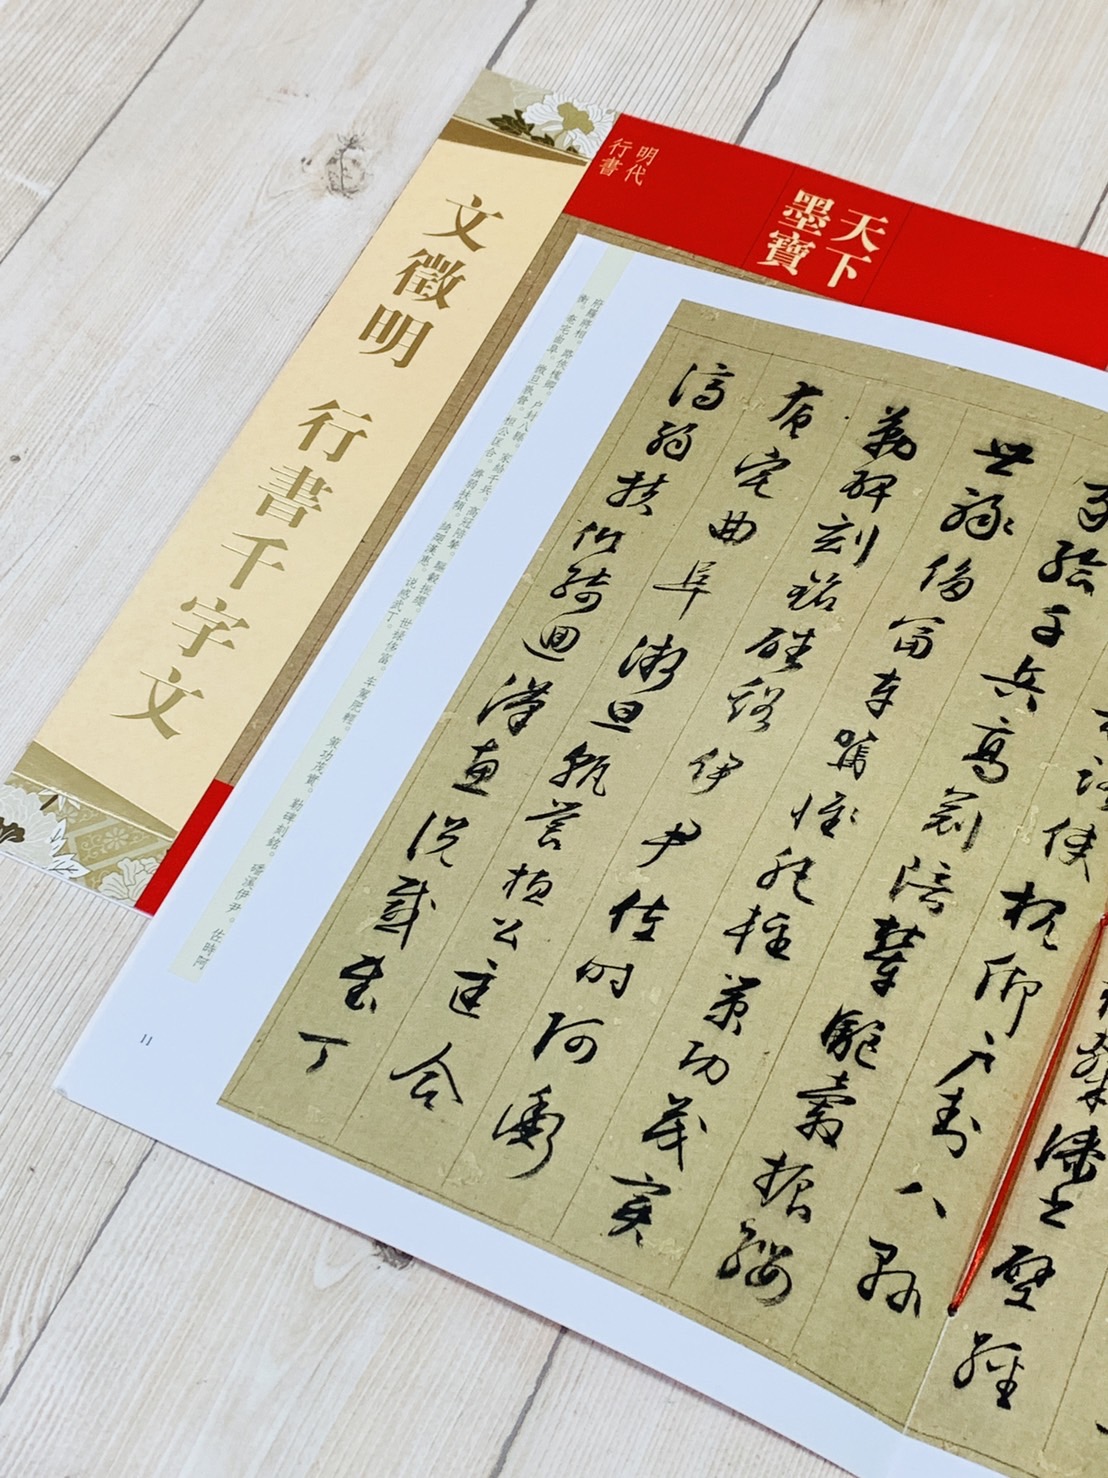 文徵明 行書千字文
明代
行書
天下
墨寶
漆書壁經
俠槐卿户封八縣
家給千兵高冠陪輦驅轂振纓
世祿侈富車駕肥輕策功茂實
勒碑刻銘磻溪伊尹佐時阿衡
奄宅曲阜微旦孰營桓公匡合
濟弱扶傾綺迴漢惠説感武丁
府羅將相。路俠槐卿。户封八縣。家給千兵。高冠陪輦。驅轂振纓。世祿侈富。车駕肥輕。策功茂實。勒碑刻銘。磻溪伊尹。佐時阿
衡。奄宅曲阜。微旦孰營。桓公匡合。濟弱扶傾。綺迴漢惠。説感武丁。
11